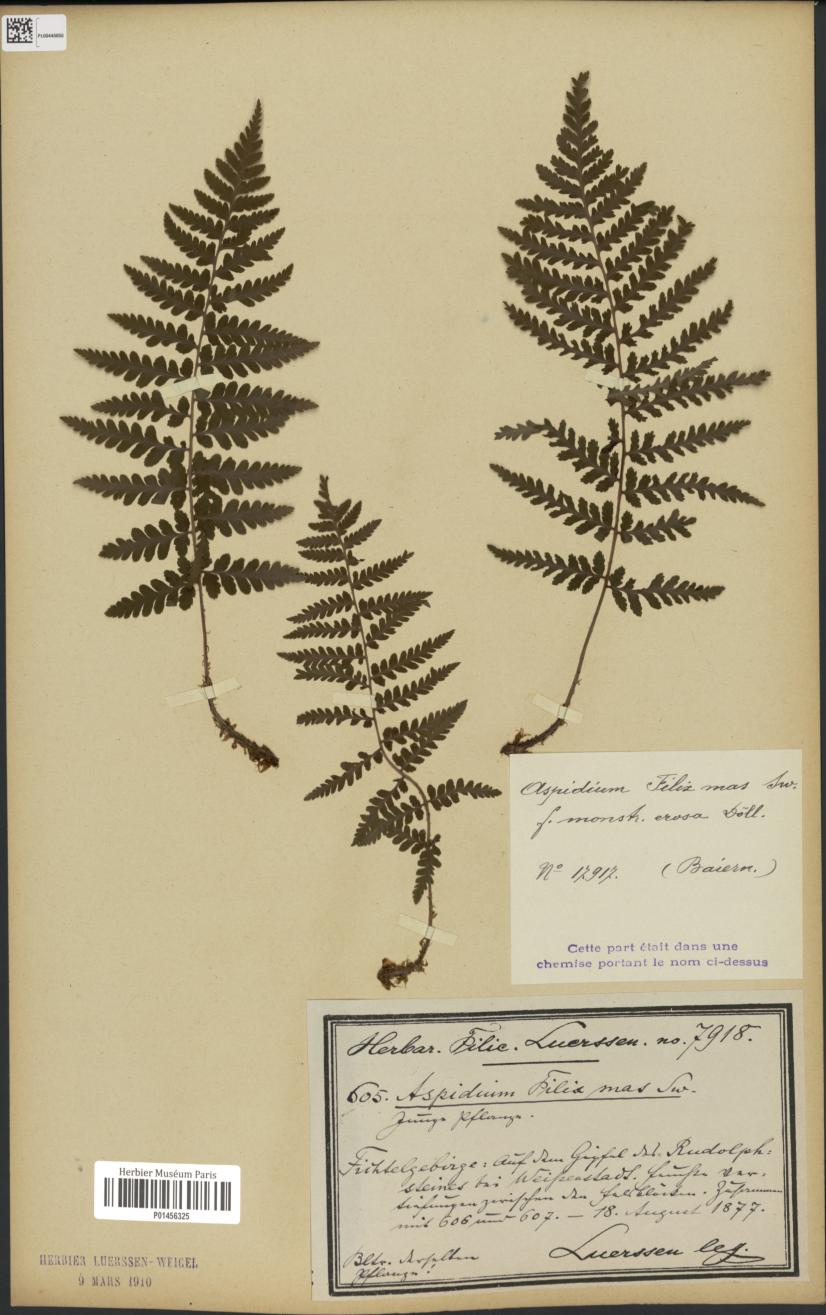 P00440050
Aspidium Filix mas Sw.
f. monstr. erosa Döll.
No 17917. (Baiern.)
Cette part était dans une
chemise portant le nom ci-dessus
Herbar. Filic. Luerssen. no. 7918.
605. Aspidium Filix mas Sw.
Junge Pflanze.
Fichtelgebirge: Auf dem Gipfel des Rudolph-
steines bei Weißenstadt. feuchte Ver-
tiefungen zwischen den Felsblöcken. Zusammen
mit 606 und 607. — 18. August 1877.
Luerssen leg.
Bltr. derselben
Pflanze!
Herbier Muséum Paris
P01456325
HERBIER LUERSSEN-WEIGEL
9 MARS 1910